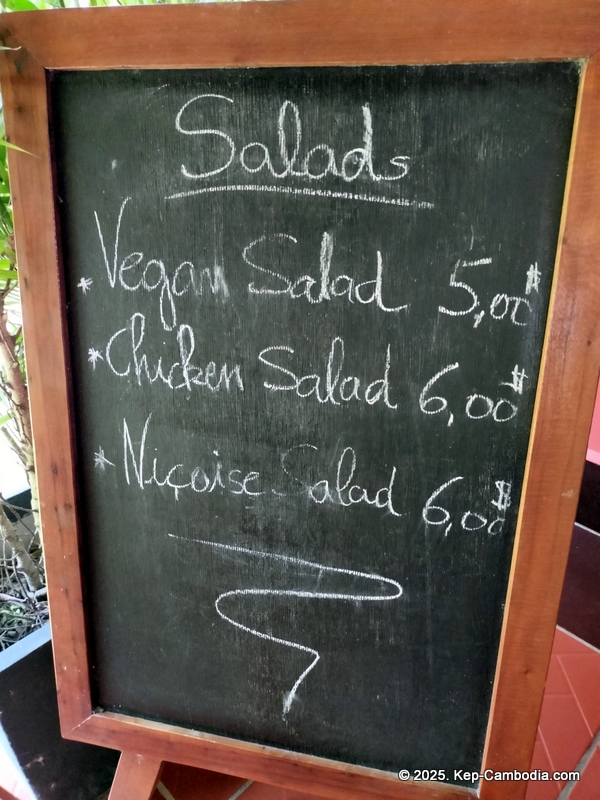 Salads
* Vegan Salad 5,00$
* Chicken Salad 6,00$
* Niçoise Salad 6,00$
© 2025. Kep-Cambodia.com